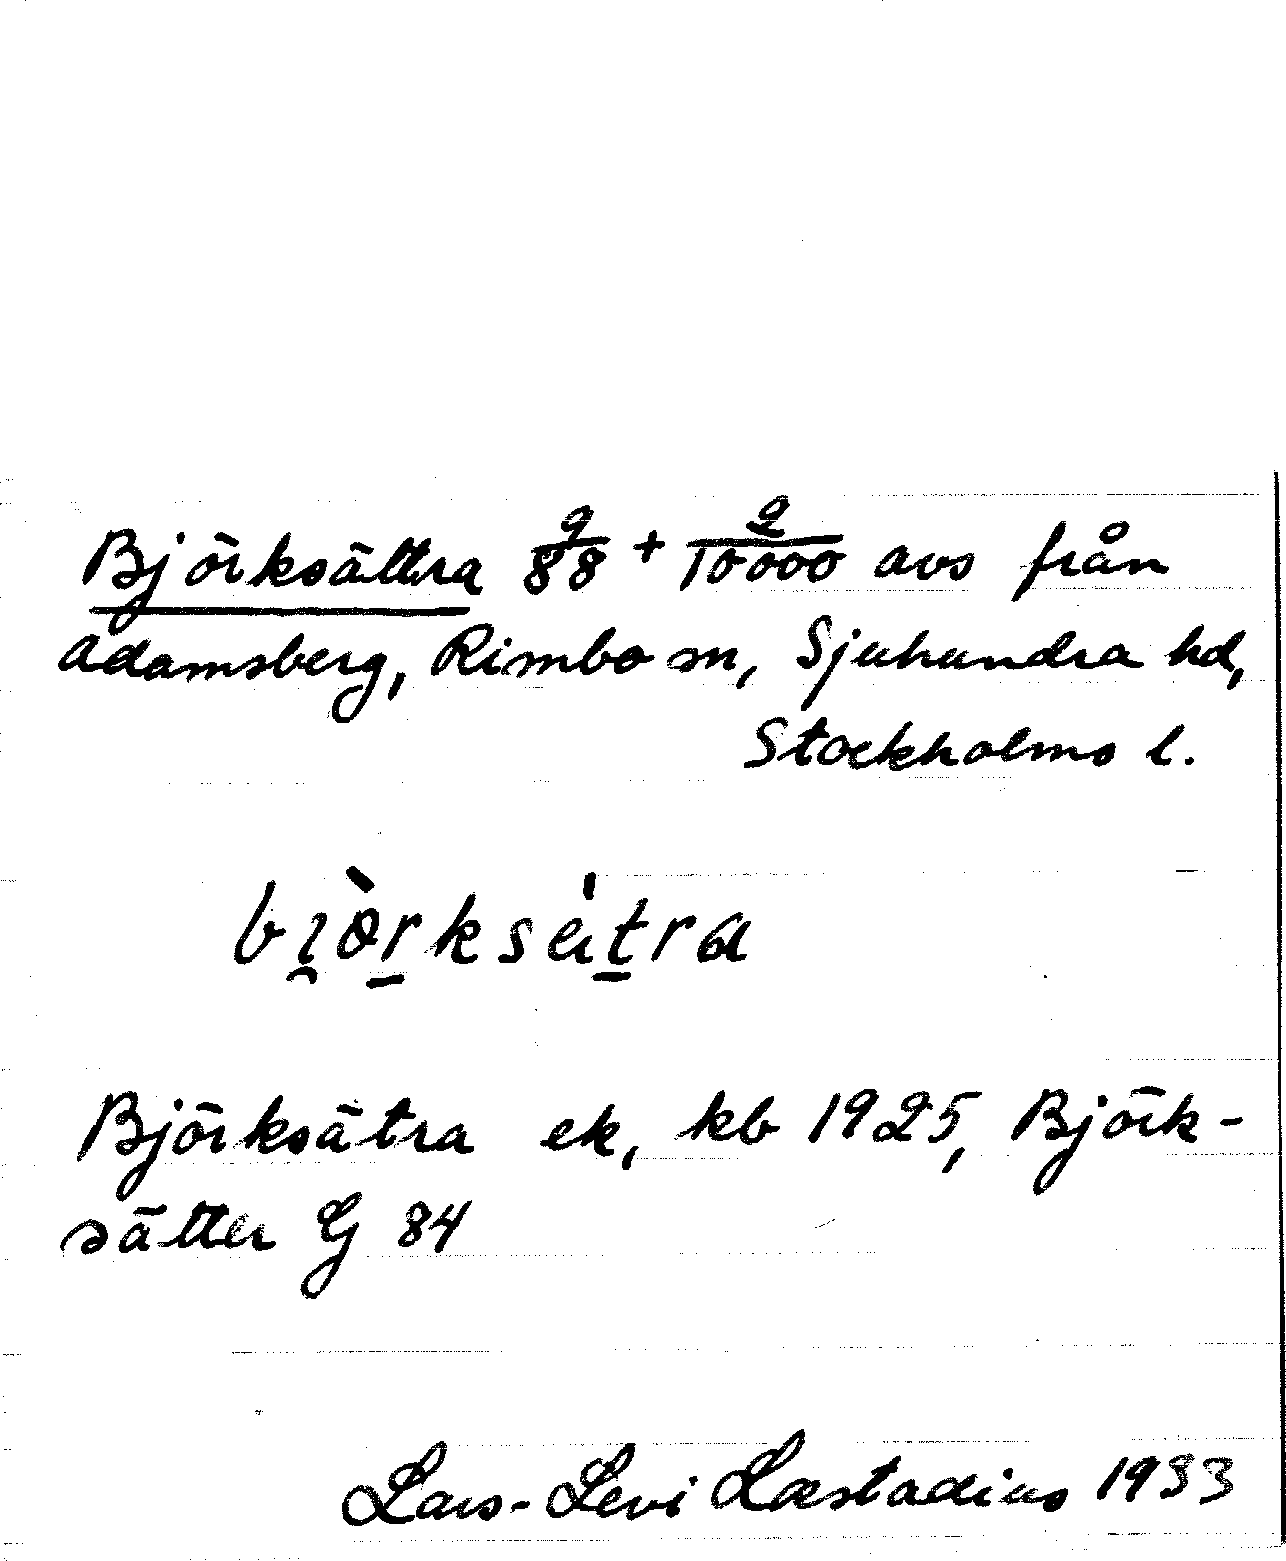 Björksättra 9/88 + 2/10000 avs från
Adamsberg, Rimbo sn, Sjuhundra hd,
Stockholms l.
bi̯ò̱rksä́ṯra
Björksätra ek, kb 1925, Björk-
sätter G 84
Lars-Levi Læstadius 1933